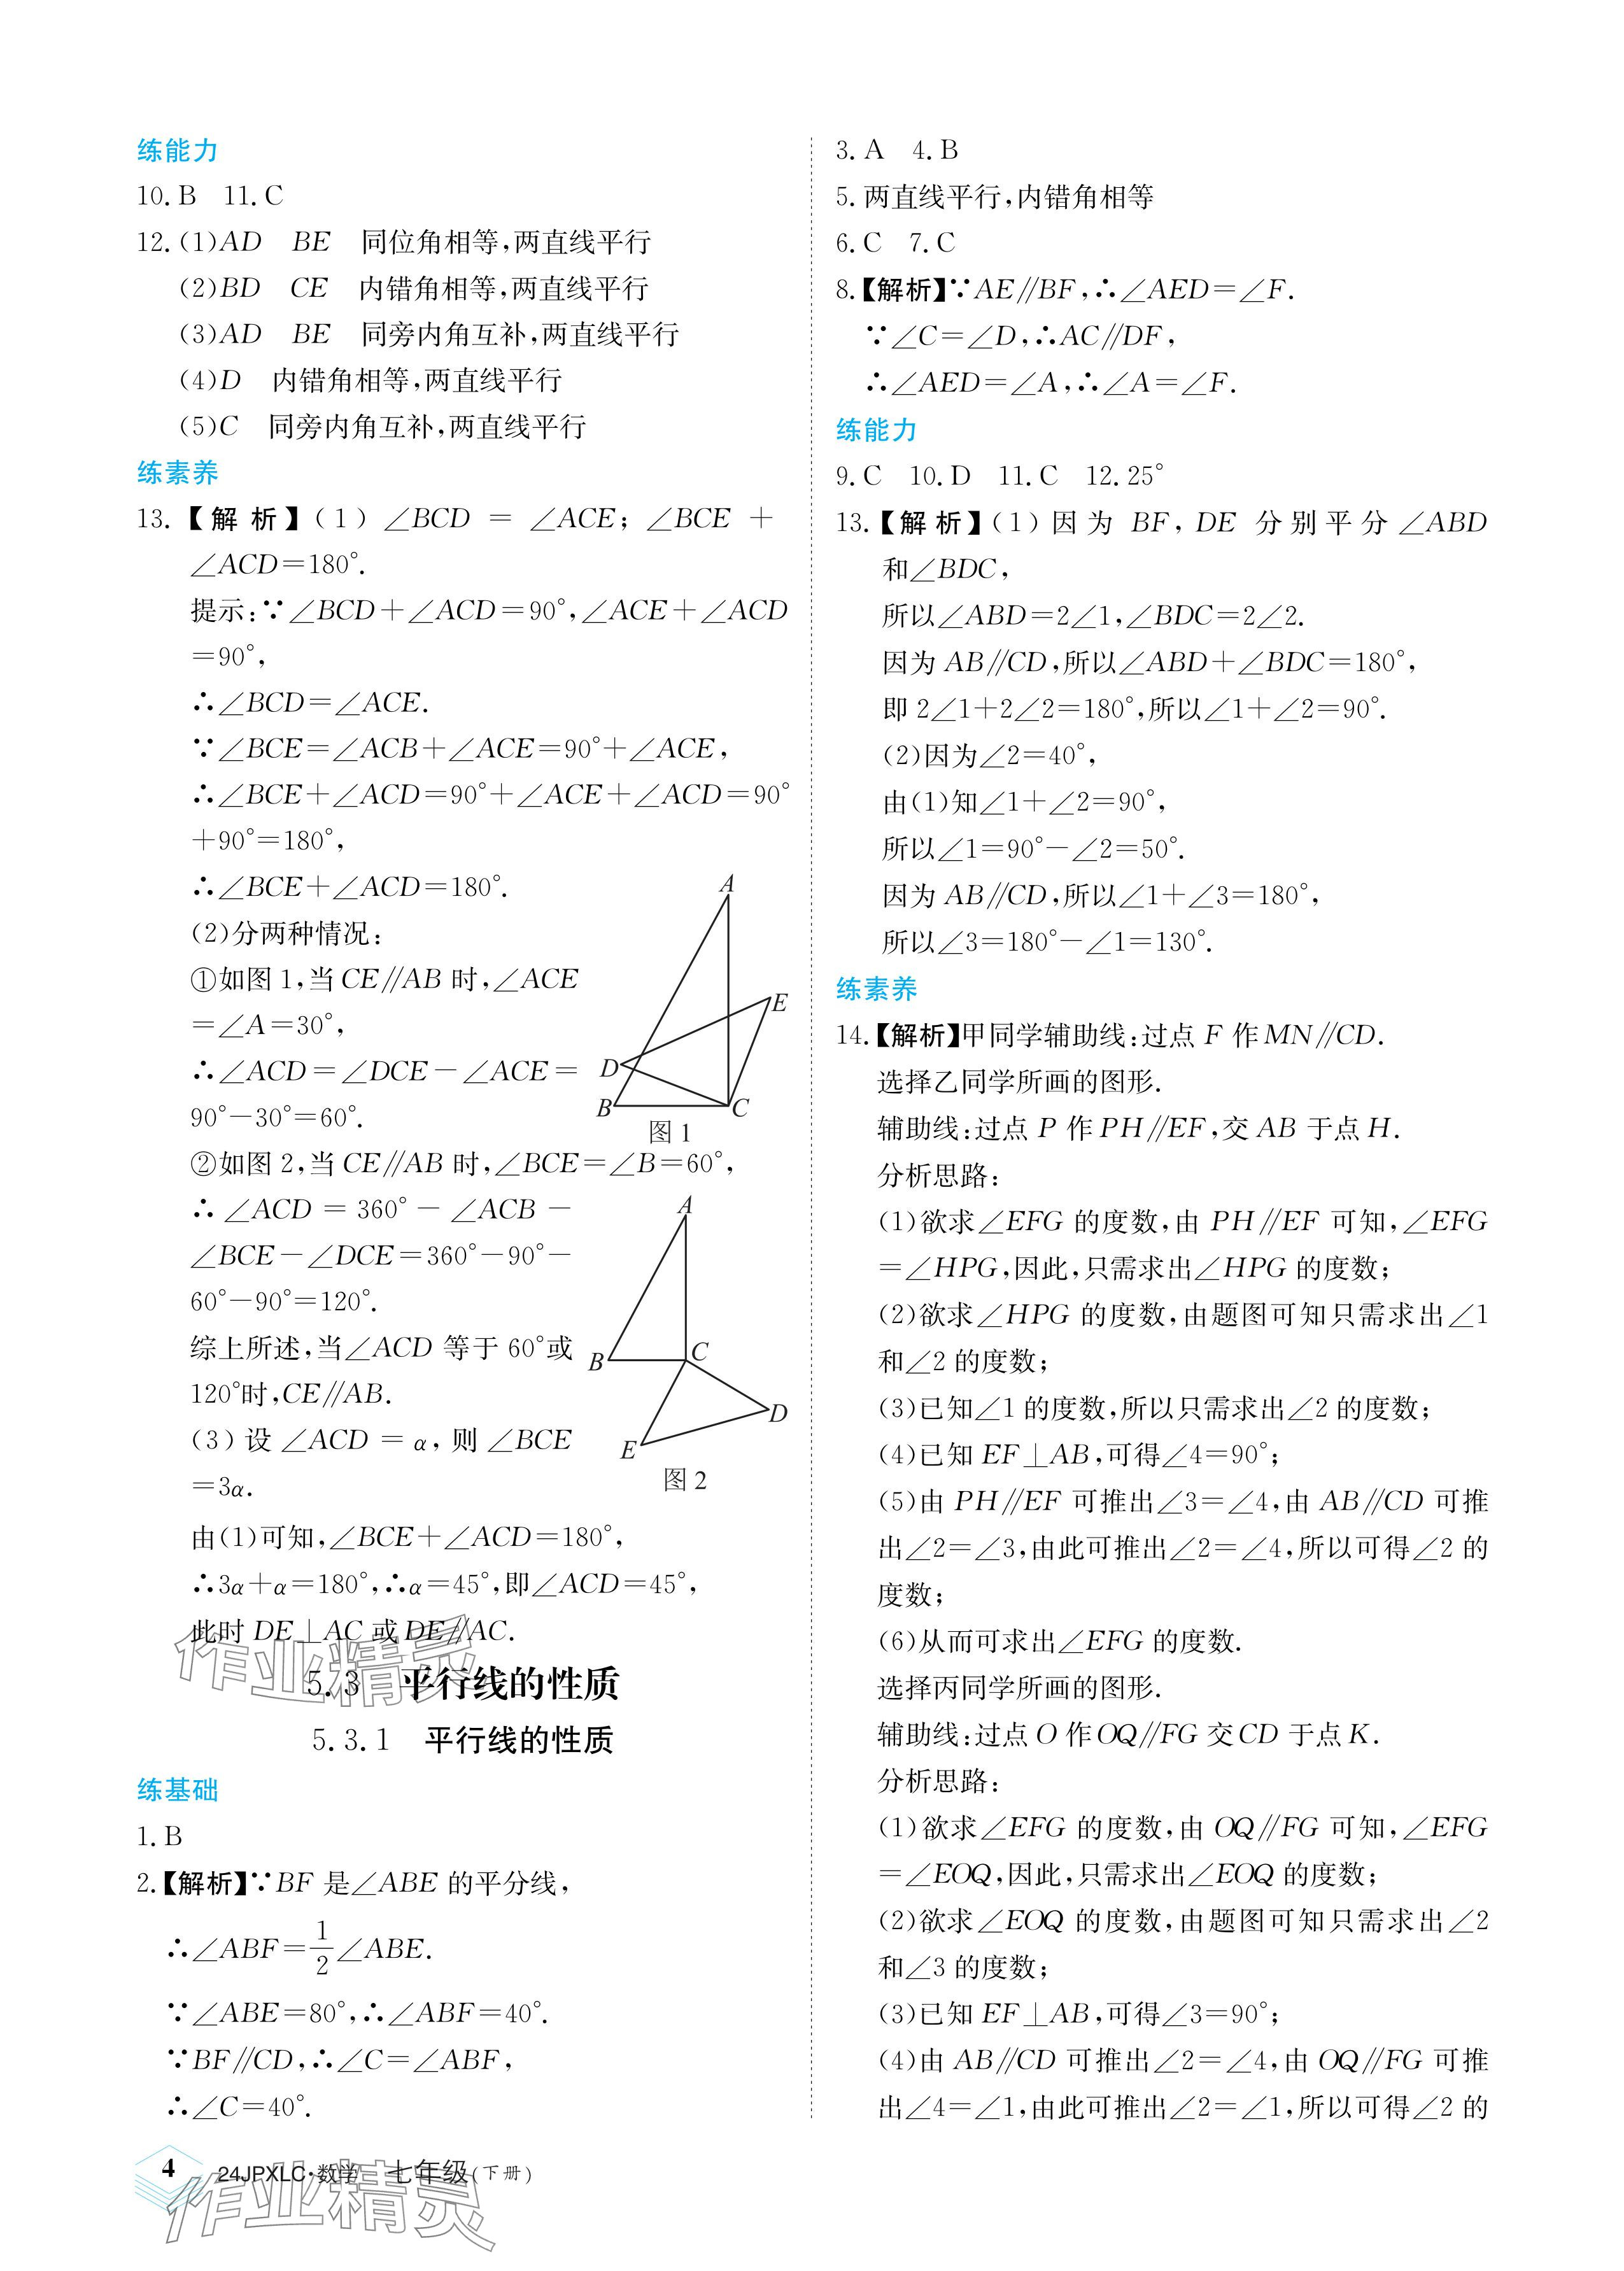 练能力
10. B　11. C
12. (1)AD　BE　同位角相等,两直线平行
(2)BD　CE　内错角相等,两直线平行
(3)AD　BE　同旁内角互补,两直线平行
(4)D　内错角相等,两直线平行
(5)C　同旁内角互补,两直线平行
练素养
13. 【解析】(1)∠BCD=∠ACE;∠BCE+
∠ACD=180°.
提示:∵∠BCD+∠ACD=90°,∠ACE+∠ACD
=90°,
∴∠BCD=∠ACE.
∵∠BCE=∠ACB+∠ACE=90°+∠ACE,
∴∠BCE+∠ACD=90°+∠ACE+∠ACD=90°
+90°=180°,
∴∠BCE+∠ACD=180°.
(2)分两种情况:
①如图1,当CE∥AB时,∠ACE
=∠A=30°,
∴∠ACD=∠DCE-∠ACE=
90°-30°=60°.
A
E
D
B
C
图1
②如图2,当CE∥AB时,∠BCE=∠B=60°,
∴∠ACD=360°-∠ACB-
∠BCE-∠DCE=360°-90°-
60°-90°=120°.
综上所述,当∠ACD等于60°或
120°时,CE∥AB.
(3)设∠ACD=α,则∠BCE
=3α.
A
B
C
D
E
图2
由(1)可知,∠BCE+∠ACD=180°,
∴3α+α=180°,∴α=45°,即∠ACD=45°,
此时DE⊥AC或DE∥AC.
作业精灵
5.3　平行线的性质
5.3.1　平行线的性质
练基础
1. B
2.【解析】∵BF是∠ABE的平分线,
∴∠ABF=1/2∠ABE.
∵∠ABE=80°,∴∠ABF=40°.
∵BF∥CD,∴∠C=∠ABF,
∴∠C=40°.
3. A　4. B
5. 两直线平行,内错角相等
6. C　7. C
8.【解析】∵AE∥BF,∴∠AED=∠F.
∵∠C=∠D,∴AC∥DF,
∴∠AED=∠A,∴∠A=∠F.
练能力
9. C　10. D　11. C　12. 25°
13.【解析】(1)因为BF,DE分别平分∠ABD
和∠BDC,
所以∠ABD=2∠1,∠BDC=2∠2.
因为AB∥CD,所以∠ABD+∠BDC=180°,
即2∠1+2∠2=180°,所以∠1+∠2=90°.
(2)因为∠2=40°,
由(1)知∠1+∠2=90°,
所以∠1=90°-∠2=50°.
因为AB∥CD,所以∠1+∠3=180°,
所以∠3=180°-∠1=130°.
练素养
14.【解析】甲同学辅助线:过点F作MN∥CD.
选择乙同学所画的图形.
辅助线:过点P作PH∥EF,交AB于点H.
分析思路:
(1)欲求∠EFG的度数,由PH∥EF可知,∠EFG
=∠HPG,因此,只需求出∠HPG的度数;
(2)欲求∠HPG的度数,由题图可知只需求出∠1
和∠2的度数;
(3)已知∠1的度数,所以只需求出∠2的度数;
(4)已知EF⊥AB,可得∠4=90°;
(5)由PH∥EF可推出∠3=∠4,由AB∥CD可推
出∠2=∠3,由此可推出∠2=∠4,所以可得∠2的
度数;
(6)从而可求出∠EFG的度数.
选择丙同学所画的图形.
辅助线:过点O作OQ∥FG交CD于点K.
分析思路:
(1)欲求∠EFG的度数,由OQ∥FG可知,∠EFG
=∠EOQ,因此,只需求出∠EOQ的度数;
(2)欲求∠EOQ的度数,由题图可知只需求出∠2
和∠3的度数;
(3)已知EF⊥AB,可得∠3=90°;
(4)由AB∥CD可推出∠2=∠4,由OQ∥FG可推
出∠4=∠1,由此可推出∠2=∠1,所以可得∠2的
4　24JPXLC·数学　七年级(下册)
作业精灵